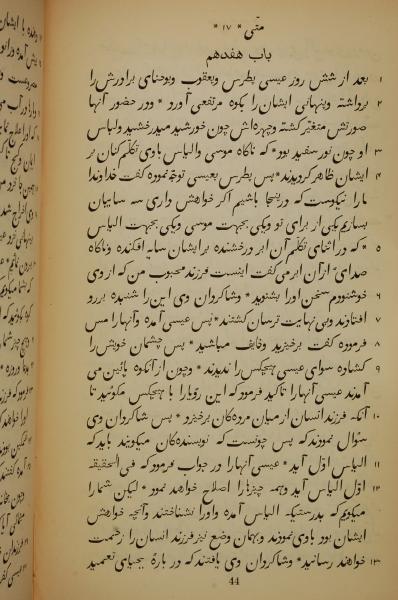 متّی * ۱۷ *
باب هفدهم
۱ بعد از شش روز عیسی پطرس و یعقوب و یوحنای برادرش را
۲ برداشته و پنهانی ایشان را بکوه مرتفعی آورد * و در حضور آنها
صورتش متغیّر کشته و چهره‌اش چون خورشید میدرخشید و لباس
۳ او چون نور سفید بود * که ناکاه موسی و الیاس با وی تکلّم کنان بر
۴ ایشان ظاهر کردیدند * پس پطرس بعیسی توجّه نموده کفت خداوندا
مارا نیکوست که در اینجا باشیم اکر خواهش داری سه سایبان
بسازیم یکی از برای تو و یکی بجهت موسی و یکی بجهت الیاس
۵ * که در اثنای تکلّم آن ابر درخشنده بر ایشان سایه افکنده و ناکاه
صدای از آن ابر می کفت اینست فرزند محبوب من که از وی
۶ خوشنودم سخن اورا بشنوید * و شاکردان وی این را شنیده بر رو
۷ افتادند و بی نهایت ترسان کشتند * پس عیسی آمده و آنهارا مس
۸ فرموده کفت برخیزید و خایف مباشید * پس چشمان خویش را
۹ کشاده سوای عیسی هیچکس را ندیدند * و چون از آنکوه پائین می
آمدند عیسی آنهارا تاکید فرمود که این رؤیارا با هیچکس مکوئید تا
۱۰ آنکه فرزند انسان از میان مرده‌کان برخیزد * پس شاکردان وی
سؤال نمودند که پس چونست که نویسنده‌کان میکویند باید که
۱۱ الیاس اوّل آید * عیسی آنهارا در جواب فرمود که فی الحقیقه
۱۲ اوّل الیاس آید و همه چیزهارا اصلاح خواهد نمود * لیکن شمارا
میکویم که بدرستیکه الیاس آمده و اورا نشناختند و آنچه خواهش
ایشان بود باوی نمودند و بهمان وضع نیز فرزند انسان را زحمت
۱۳ خواهند رسانید * و شاکردان وی یافتند که در بارهٔ یحیای تعمید
44